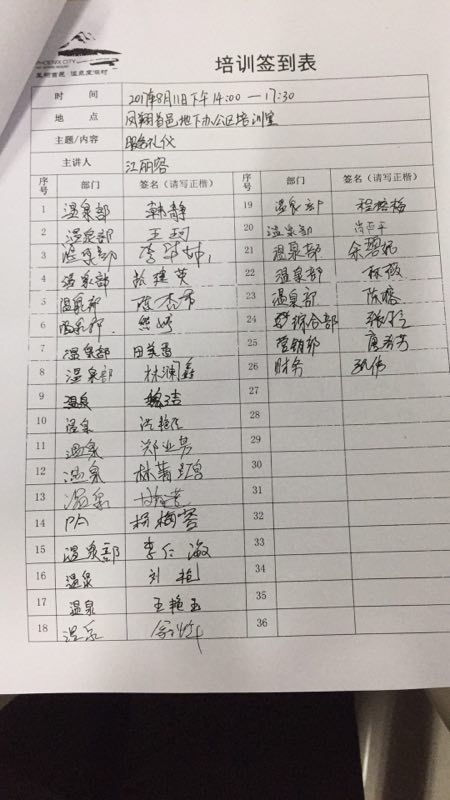 PHOENIX CITY
培训签到表
时 间 2017年8月11日下午14:00—17:30
地 点 凤翔首邑地下办公区培训室
主题/内容 服务礼仪
主讲人 江丽容
序号 部门 签名（请写正楷） 序号 部门 签名（请写正楷）
1 温泉部 韩静 19 温泉部 程榕梅
2 温泉部 王珂 20 温泉部
3 温泉部 21 温泉部
4 温泉部 张建英 22 温泉部 林薇
5 温泉部 23 温泉部 陈榕
6 温泉部 熊婷 24 综合部
7 温泉部 田美香 25 营销部
8 温泉部 林澜鑫 26 财务
9 温泉 魏洁 27
10 温泉 洪艳红 28
11 温泉 郑业芳 29
12 温泉 林菁 30
13 温泉 31
14 PA 杨梅蓉 32
15 温泉部 李仁海 33
16 温泉 刘艳 34
17 温泉 王艳玉 35
18 温泉 36